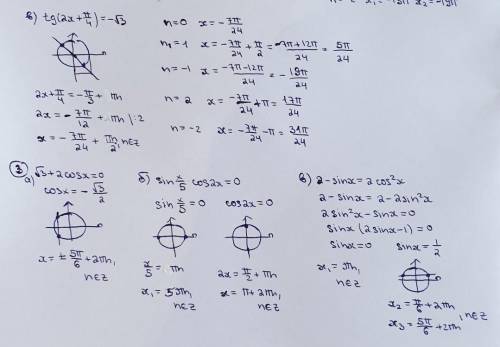 в) tg(2x+π/4)=-√3
2x+π/4=-π/3+πn
2x=-7π/12+πn |:2
x=-7π/24+πn/2, n∈Z
n=0 x=-7π/24
n=1 x=-7π/24+π/2=-7π+12π/24=5π/24
n=-1 x=-7π-12π/24=-19π/24
n=2 x=-7π/24+π=17π/24
n=-2 x=-7π/24-π=31π/24
3
а) √3+2cosx=0
cosx=-√3/2
x=±5π/6+2πn,
n∈Z
б) sin x/5 cos2x=0
sin x/5=0 cos2x=0
x/5=πn 2x=π/2+πn
x₁=5πn, x=π+2πn,
n∈Z n∈Z
в) 2-sinx=2cos²x
2-sinx=2-2sin²x
2sin²x-sinx=0
sinx(2sinx-1)=0
sinx=0 sinx=1/2
x₁=πn,
n∈Z
x₂=π/6+2πn
x₃=5π/6+2πn, n∈Z